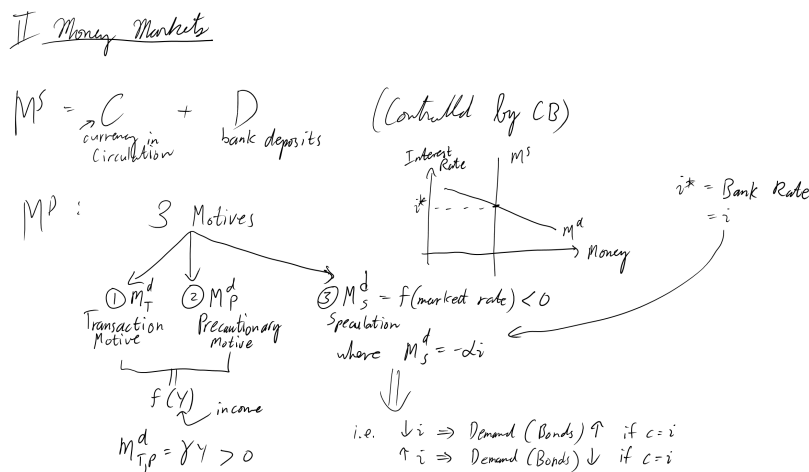 II Money Markets
M^S = C + D (Controlled by CB)
currency in circulation
bank deposits
Interest Rate
M^S
i*
M^d
Money
i* = Bank Rate
= i
M^D : 3 Motives
① M_T^d ② M_P^d ③ M_S^d = f(market rate) < 0
Transaction Motive
Precautionary Motive
Speculation
where M_S^d = -αi
f(Y)
income
M_{T,P}^d = γY > 0
i.e. ↓i ⇒ Demand (Bonds) ↑ if c=i
↑i ⇒ Demand (Bonds) ↓ if c=i